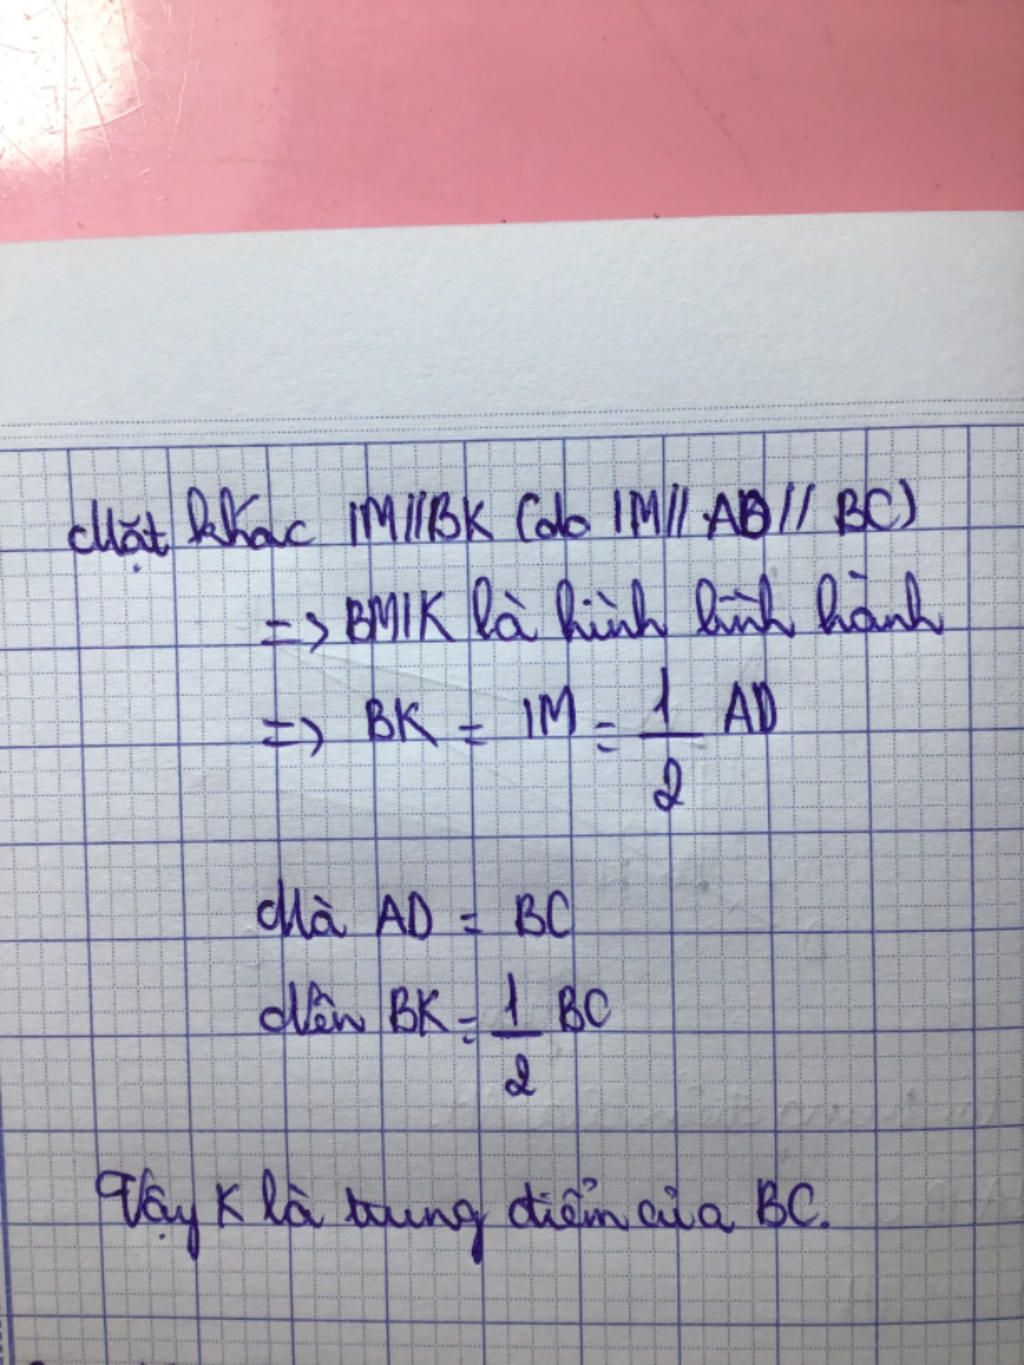 Mặt khac IM//BK (do IM// AD// BC)
=> BMIK là hình bình hành
=> BK = IM = 1/2 AD
Mà AD = BC
Nên BK = 1/2 BC
Vậy K là trung điểm của BC.